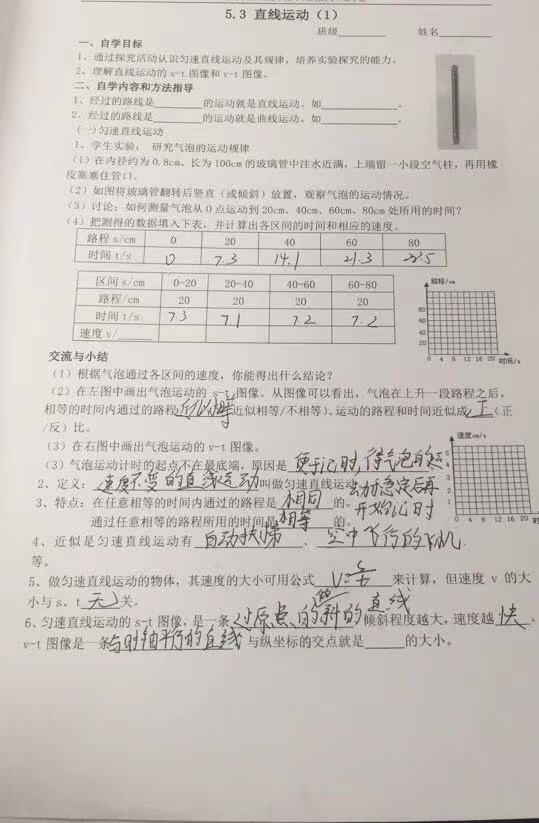 5.3 直线运动（1）
班级________ 姓名________
一、自学目标
1、通过探究活动认识匀速直线运动及其规律，培养实验探究的能力。
2、理解直线运动的 s-t 图像和 v-t 图像。
二、自学内容和方法指导
1、经过的路线是________的运动就是直线运动。如____________。
2、经过的路线是________的运动就是曲线运动。如____________。
(一)匀速直线运动
1、学生实验： 研究气泡的运动规律
（1）在内径约为 0.8cm、长为 100cm 的玻璃管中注水近满，上端留一小段空气柱，再用橡
皮塞塞住管口。
（2）如图将玻璃管翻转后竖直（或倾斜）放置，观察气泡的运动情况。
（3）讨论：如何测量气泡从 0 点运动到 20cm、40cm、60cm、80cm 处所用的时间？
（4）把测得的数据填入下表，并计算出各区间的时间和相应的速度。
路程 s/cm 0 20 40 60 80
时间 t/s 0 7.3 14.1 21.3
区间 s/cm 0-20 20-40 40-60 60-80
路程/cm 20 20 20 20
时间 t/s 7.3 7.1 7.2 7.2
速度 v/____
路程/cm
80
60
40
20
0 4 8 12 16 20 时间/s
交流与小结
（1）根据气泡通过各区间的速度，你能得出什么结论？
（2）在左图中画出气泡运动的 s-t 图像。从图像可以看出，气泡在上升一段路程之后，
相等的时间内通过的路程近似相等(近似相等/不相等)。运动的路程和时间近似成正（正
/反）比。
（3）在右图中画出气泡运动的 v-t 图像。
（3）气泡运动计时的起点不在最底端，原因是便于记时,待气泡的运
动稳定后再
开始记时
速度cm/s
5
4
3
2
1
0 4 8 12 16 20 时
2、定义：速度不变的直线运动叫做匀速直线运动
3、特点：在任意相等的时间内通过的路程是相同的。
通过任意相等的路程所用的时间是相等的。
4、近似是匀速直线运动有自动扶梯、空中飞行的飞机
等。
5、做匀速直线运动的物体，其速度的大小可用公式 v=s/t 来计算，但速度 v 的大
小与 s、t 无关。
6、匀速直线运动的 s-t 图像，是一条过原点的斜的直线倾斜程度越大，速度越快。
v-t 图像是一条与时轴平行的直线与纵坐标的交点就是______的大小。